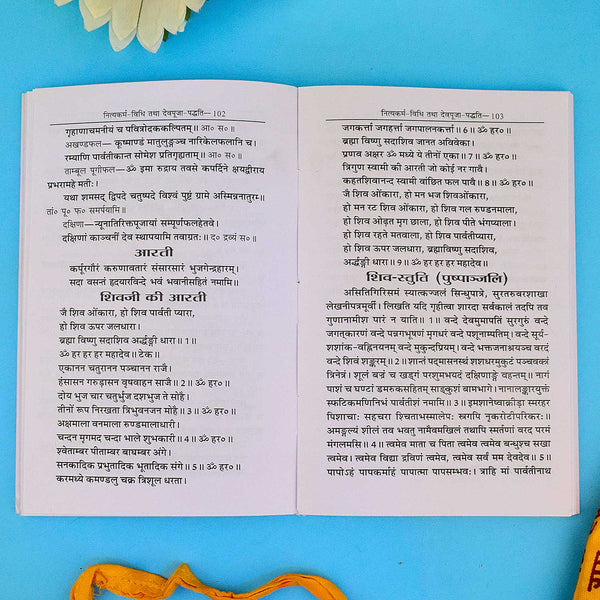 नित्यकर्म-विधि तथा देवपूजा-पद्धति—102
गृहाणाचमनीयं च पवित्रोदककल्पितम्॥ आ० स०॥
अखण्डफल— कूष्माण्डं मातुलुङ्गञ्च नारिकेलफलानि च।
रम्याणि पार्वतीकान्त सोमेश प्रतिगृह्यताम्॥
ताम्बूल पूगीफल—ॐ इमा रुद्राय तवसे कपर्दिने क्षयद्वीराय
प्रभरामहे मतीः।
यथा शमसद् द्विपदे चतुष्पदे विश्वं पुष्टं ग्रामे अस्मिन्ननातुरम॥
तां० पू० फ० समर्पयामि॥
दक्षिणा—न्यूनातिरिक्तपूजायां सम्पूर्णफलहेतवे।
दक्षिणां काञ्चनीं देव स्थापयामि तवाग्रतः॥ द० द्रव्यं स०॥
आरती
कर्पूरगौरं करुणावतारं संसारसारं भुजगेन्द्रहारम्।
सदा वसन्तं हृदयारविन्दे भवं भवानीसहितं नमामि॥
शिवजी की आरती
जै शिव ओंकारा, हो शिव पार्वती प्यारा,
हो शिव ऊपर जलधारा।
ब्रह्मा विष्णु सदाशिव अर्द्धङ्गी धारा॥1॥
ॐ हर हर हर महादेव॥ टेक॥
एकानन चतुरानन पञ्चानन राजै।
हंसासन गरुड़ासन वृषवाहन साजै॥2॥ ॐ हर०॥
दोय भुज चार चतुर्भुज दशभुज ते सोहे।
तीनों रूप निरखता त्रिभुवनजन मोहे॥3॥ ॐ हर०॥
अक्षमाला वनमाला रुण्डमालाधारी।
चन्दन मृगमद चन्दा भाले शुभकारी॥4॥ॐ हर०॥
श्वेताम्बर पीताम्बर बाघम्बर अंगे।
सनकादिक प्रभुतादिक भूतादिक संगे॥5॥ॐ हर०॥
करमध्ये कमण्डलु चक्र त्रिशूल धरता।
नित्यकर्म-विधि तथा देवपूजा-पद्धति—103
जगकर्त्ता जगहर्त्ता जगपालनकर्त्ता॥6॥ ॐ हर०॥
ब्रह्मा विष्णु सदाशिव जानत अविवेका।
प्रणव अक्षर ॐ मध्ये ये तीनों एका॥7॥ॐ हर०॥
त्रिगुण स्वामी की आरती जो कोई नर गावै।
कहतशिवानन्द स्वामी वांछित फल पावै॥8॥ॐ हर०॥
जै शिव ओंकारा, हो मन भज शिवओंकारा,
हो मन रट शिव ओंकारा, हो शिव गल रुण्डनमाला,
हो शिव ओढ़त मृग छाला, हो शिव पीते भंगप्याला।
हो शिव रहते मतवाला, हो शिव पार्वतीप्यारा,
हो शिव ऊपर जलधारा, ब्रह्माविष्णु सदाशिव,
अर्द्धङ्गी धारा॥9॥ॐ हर हर हर महादेव॥
शिव-स्तुति (पुष्पाञ्जलि)
असितिगिरिसमं स्यात्कज्जलं सिन्धुपात्रे, सुरतरुवरशाखा
लेखनीपत्रमूर्वी। लिखति यदि गृहीत्वा शारदा सर्वकालं तदपि तव
गुणानामीश पारं न याति॥1॥ वन्दे देवमुमापतिं सुरगुरुं वन्दे
जगत्कारणं वन्दे पन्नगभूषणं मृगधरं वन्दे पशूनाम्पतिम्। वन्दे सूर्य-
शशांक-वह्निनयनम् वन्दे मुकुन्दप्रियम्। वन्दे भक्तजनाश्रयञ्च वरदं
वन्दे शिवं शङ्करम्॥2॥ शान्तं पद्मासनस्थं शशधरमुकुटं पञ्चवक्त्रं
त्रिनेत्रं। शूलं बज्रं च खड्गं परशुमभयदं दक्षिणाङ्गे वहन्तम्॥ नागं
पाशं च घण्टां डमरुकसहितम् साङ्कुशं बामभागे। नानालङ्कारयुक्तं
स्फटिकमणिनिभं पार्वतीशं नमामि॥3॥ इमशानेष्वाक्रीड़ा स्मरहर
पिशाचाः सहचरा श्चिताभस्मालेपः स्रगपि नृकरोटीपरिकरः॥
अमङ्गल्यं शीलं तव भवतु नामैवमखिलं तथापि स्मर्तणां वरद परमं
मंगलमसि॥4॥ त्वमेव माता च पिता त्वमेव त्वमेव बन्धुश्च सखा
त्वमेव। त्वमेव विद्या द्रविणं त्वमेव, त्वमेव सर्वं मम देवदेव॥5॥
पापोऽहं पापकर्माहं पापात्मा पापसम्भवः। त्राहि मां पार्वतीनाथ